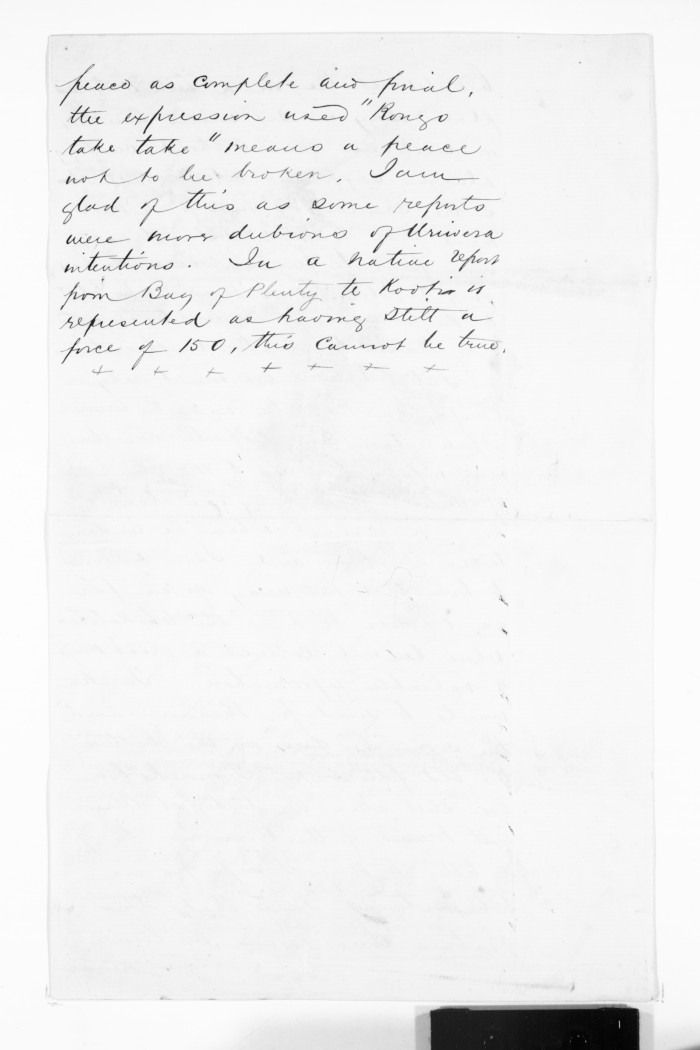 peace as complete and final,
the expression used "Rongo
take take" means a peace
not to be broken. I am
glad of this as some reports
were more dubious of Uriwera
intentions. In a native report
from Bay of Plenty te Kooti is
represented as having still a
force of 150, this cannot be true.
+ + + + + + +